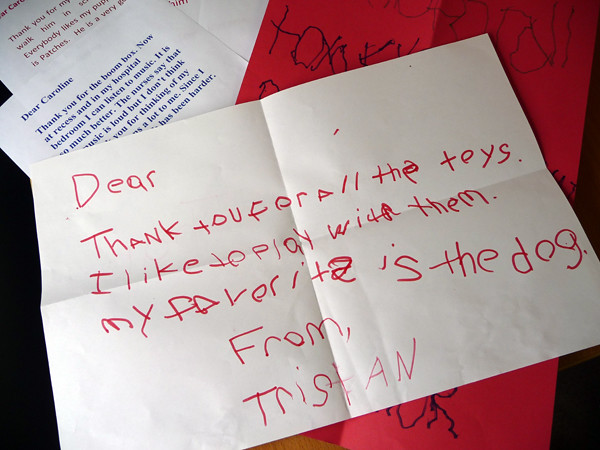 Dear Caro
Thank you for my
walk him in
Everybody likes my pup
is Patches. He is a very go
Dear Caroline
Thank you for the boom box. Now
at recess and in my hospital
bedroom I can listen to music. It is
so much better. The nurses say that
music is loud but I don't think
you for thinking of my
a lot to me. Since I
has been harder.
Dear
THANK YOU FOR All the toys.
I like to play with them.
my faverite is the dog.
From,
TRistAN